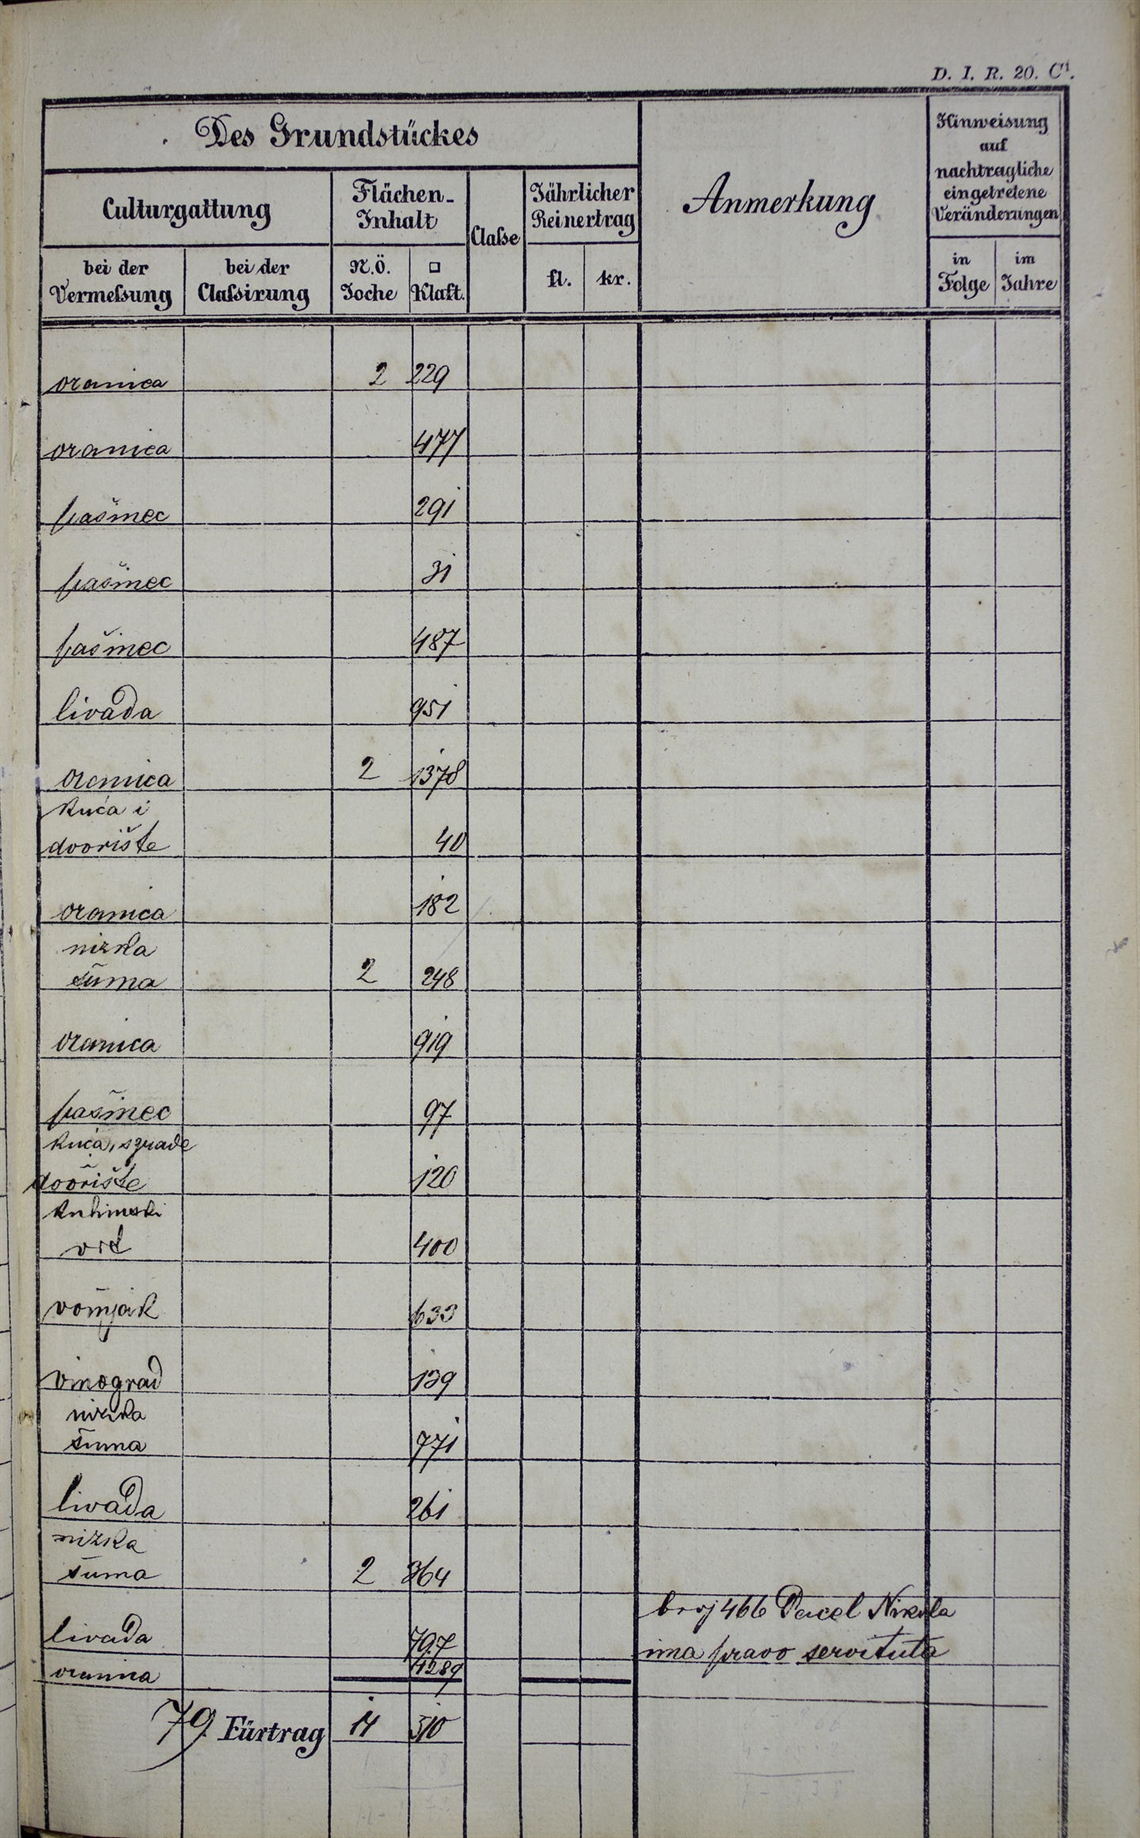 D. I. R. 20. C¹.
Des Grundstückes
Anmerkung
Hinweisung
auf
nachtragliche
eingetretene
Veränderungen
Culturgattung
Flächen-
Inhalt
Claße
Jährlicher
Reinertrag
bei der
Vermeßung
bei der
Claßirung
N.Ö.
Joche
□
Klaft.
fl.
kr.
in
Folge
im
Jahre
oranica 2 229
oranica 477
pašinec 291
pašinec 31
pašinec 487
livada 951
oranica 2 1378
kuća i
dvorište 40
oranica 182
nizka
šuma 2 248
oranica 919
pašinec 97
kuća, zgrade
dvorište 120
kuhinski
vrt 400
voćnjak 633
vinograd 139
nizka
šuma 771
livada 261
nizka
šuma 2 364
broj 466 Pacel Nikola
livada 797
ima pravo servituta
oranica 1289
79. Fürtrag 14 510